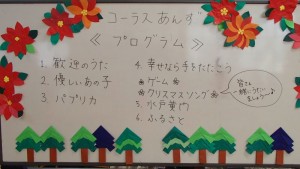 コーラス あんず
≪ プログラム ≫
1. 歓迎のうた
2. 優しいあの子
3. パプリカ
4. 幸せなら手をたたこう
❀ ゲーム ❀
❀クリスマスソング❀
5. 水戸黄門
6. ふるさと
皆で
一緒にうたい
ましょう〜♪